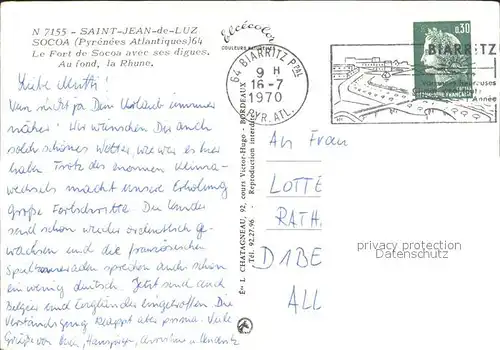 N 7155 - SAINT-JEAN-de-LUZ
SOCOA (Pyrénées Atlantiques) 64
Le Fort de Socoa avec ses digues.
Au fond, la Rhune.
Elcécolor
COULEURS NATURELLES
64 BIARRITZ PPAL
9 H
16-7
1970
PYR. ATL.
0,30
BIARRITZ
Année
Liebe Mutti!
Nun rückt ja Dein Urlaub immer
näher. Wir wünschen Dir auch
solch schönes Wetter, wie wir es hier
haben. Trotz des enormen Klima-
wechsels macht unsere Erholung
große Fortschritte. Die Kinder
sind schon wieder ordentlich ge-
wachsen und die französischen
Spielkameraden sprechen auch schon
ein wenig deutsch. Jetzt sind auch
Belgier und Engländer eingetroffen. Die
Verständigung klappt aber prima. Viele
Grüße von
Éts L. CHATAGNEAU, 92, cours Victor-Hugo - BORDEAUX
Tél. 92.27.96 - Reproduction interdite
An Frau
LOTTE
RATH.
D1BE
ALL
privacy protection
Datenschutz